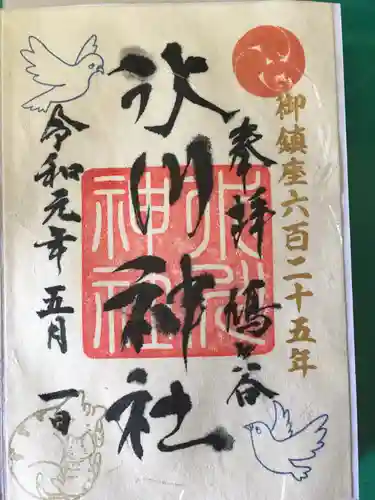 御鎮座六百二十五年
奉拝 鳩ヶ谷
氷川神社
氷川神社
令和元年五月一日